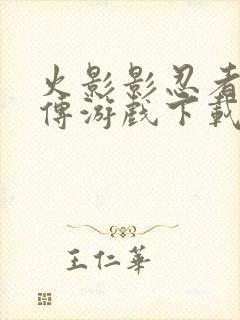 火影影忍者
傳游戲下載
王仁華